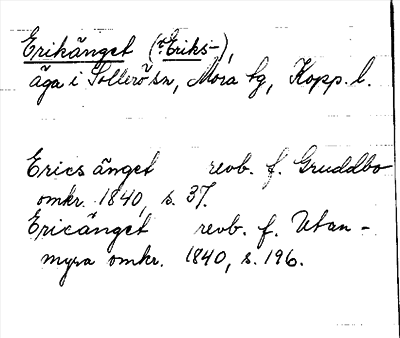 Erikänget (~Eriks-),
äga i Sollerö sn, Mora tg, Kopp. l.
Ericsänget revb. f. Gruddbo
omkr. 1840, s. 37.
Ericänget revb. f. Utan-
myra omkr. 1840, s. 196.